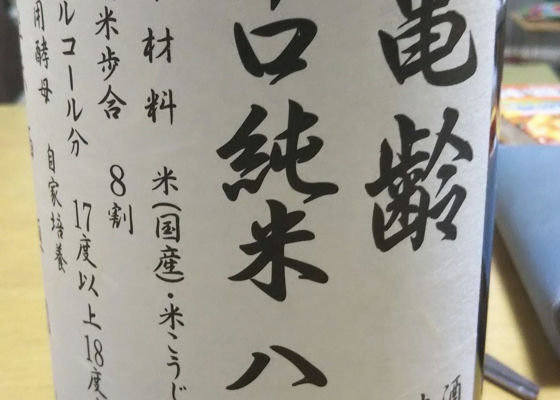 亀齢
口純米 八
材料 米(国産)・米こうじ
米歩合 8割
ルコール分 17度以上18度
用酵母 自家培養
酒